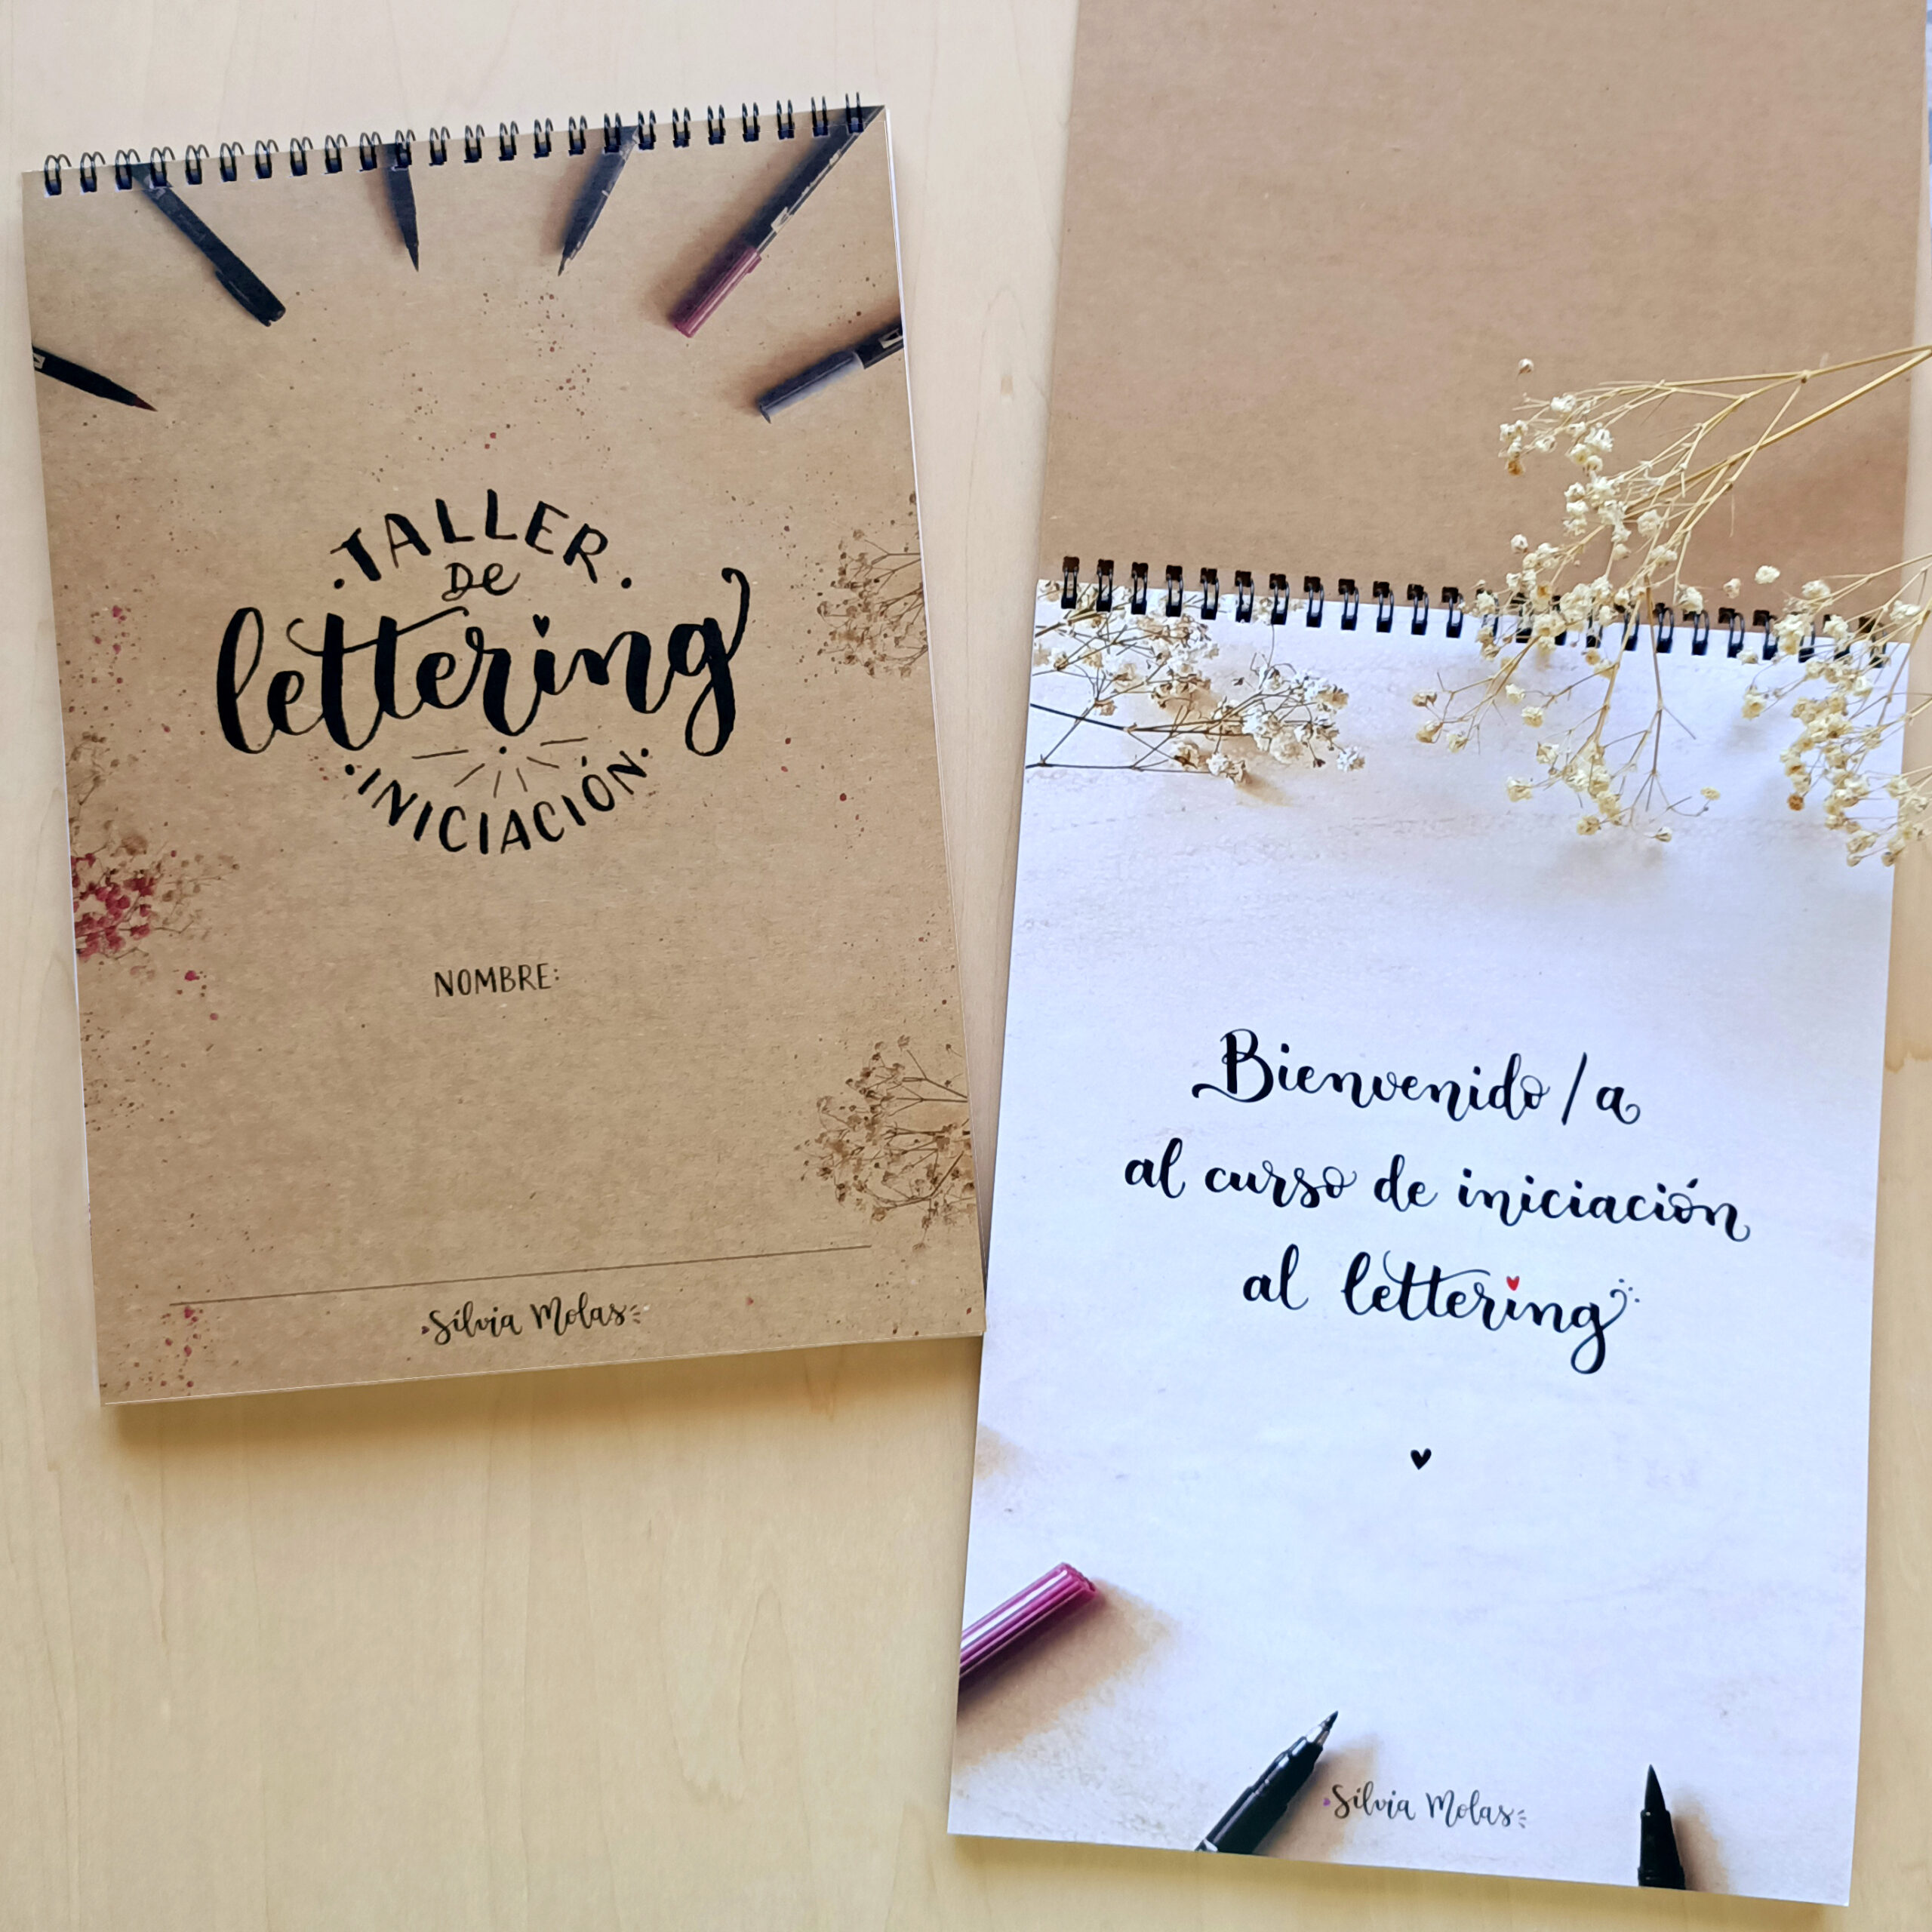 .TALLER.
DE
lettering
·INICIACIÓN·
NOMBRE:
Silvia Molas
Bienvenido/a
al curso de iniciación
al lettering
Silvia Molas